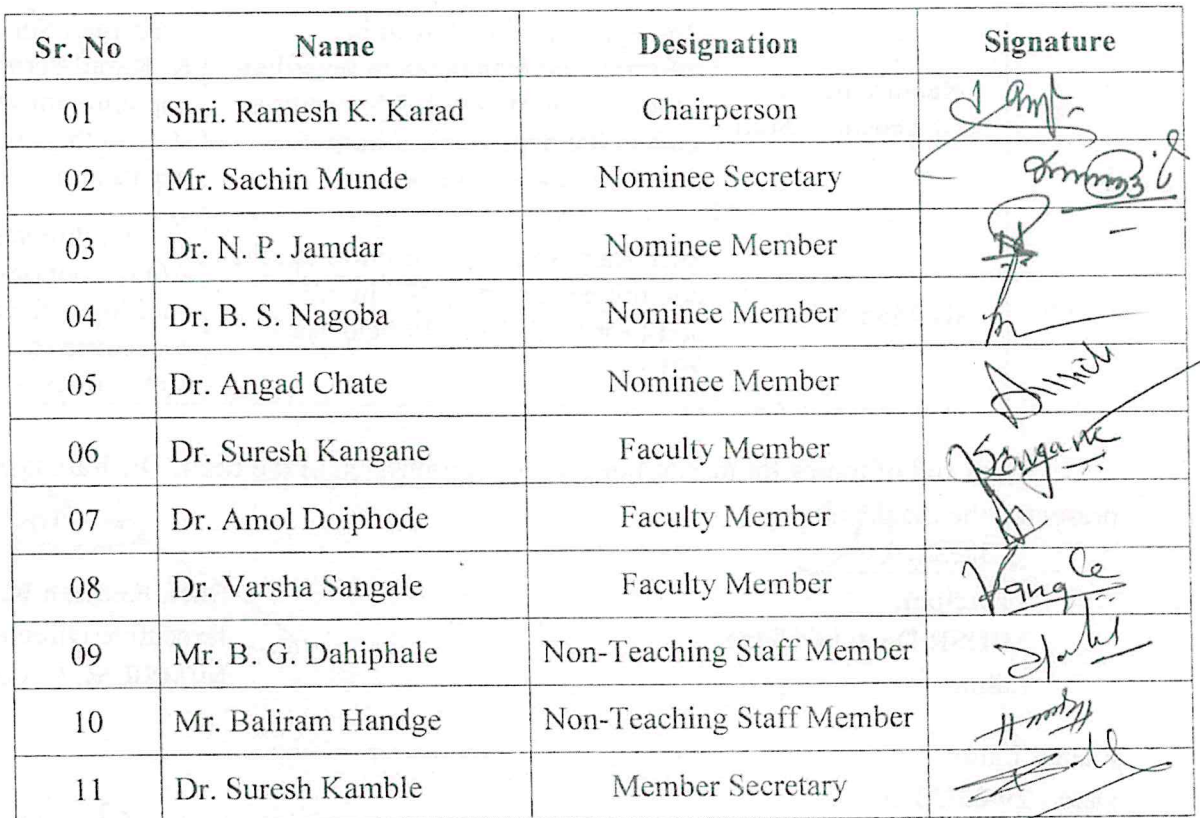 Sr. No Name Designation Signature
01 Shri. Ramesh K. Karad Chairperson
02 Mr. Sachin Munde Nominee Secretary
03 Dr. N. P. Jamdar Nominee Member
04 Dr. B. S. Nagoba Nominee Member
05 Dr. Angad Chate Nominee Member
06 Dr. Suresh Kangane Faculty Member Kangane
07 Dr. Amol Doiphode Faculty Member
08 Dr. Varsha Sangale Faculty Member
09 Mr. B. G. Dahiphale Non-Teaching Staff Member
10 Mr. Baliram Handge Non-Teaching Staff Member
11 Dr. Suresh Kamble Member Secretary